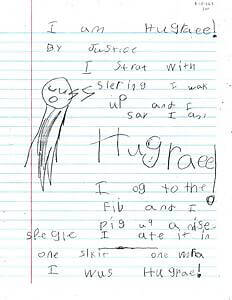 I am Hugraee!
By Justice
I strat with
slering I wak
up and I
say I am
Hugraee!
I og to the
Fib and I
pig up a
shegle I ate it in
one slkir one
I wus Hugrae!